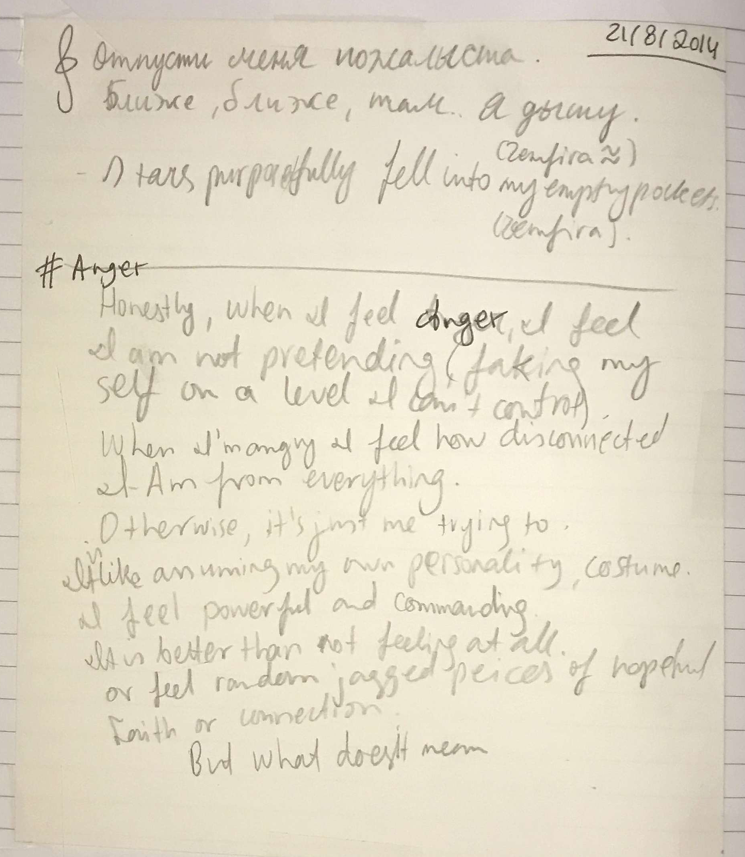 21/8/2014
Отпусти меня пожалыста.
ближе, ближе, там.. я дышу.
(Zemfira ≈)
- Stars purposefully fell into my empty pockets.
(Zemfira).
# Anger
Honestly, when I feel anger, I feel
I am not pretending (faking my
self on a level I can't control).
When I'm angry I feel how disconnected
I Am from everything.
Otherwise, it's just me trying to.
It's like assuming my own personality, costume.
I feel powerful and commanding.
It is better than not feeling at all.
or feel random jagged peices of hopeful
faith or connection.
But what does it mean